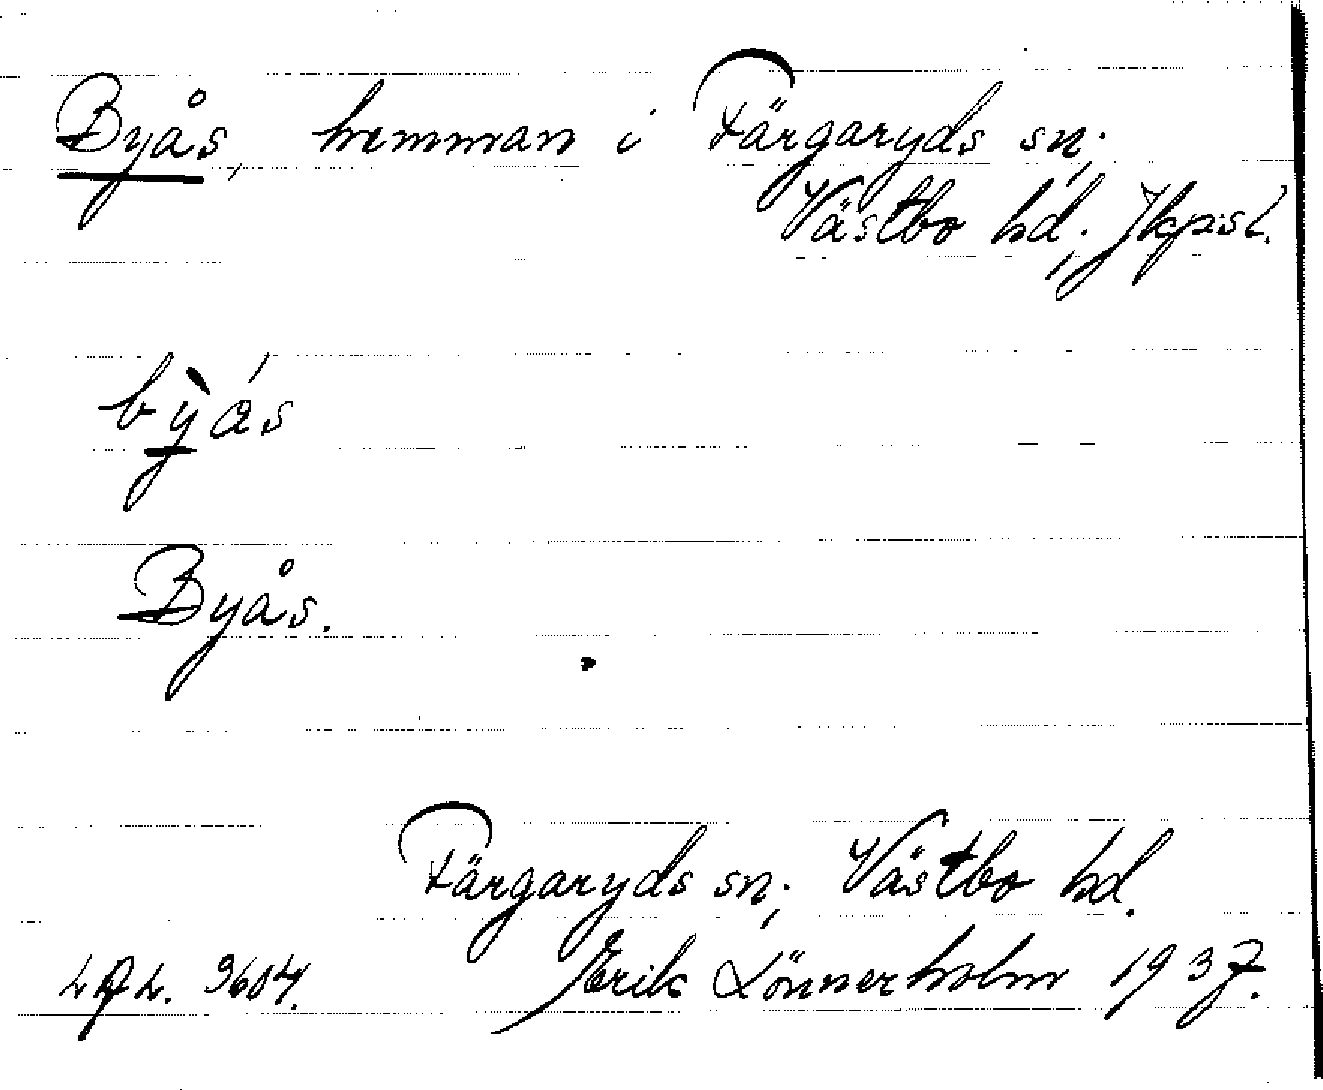 Byås, hemman i Färgaryds sn.,
Västbo hd., Jkpsl.
bỳás
Byås.
Färgaryds sn., Västbo hd.
Erik Lönnerholm 1937.